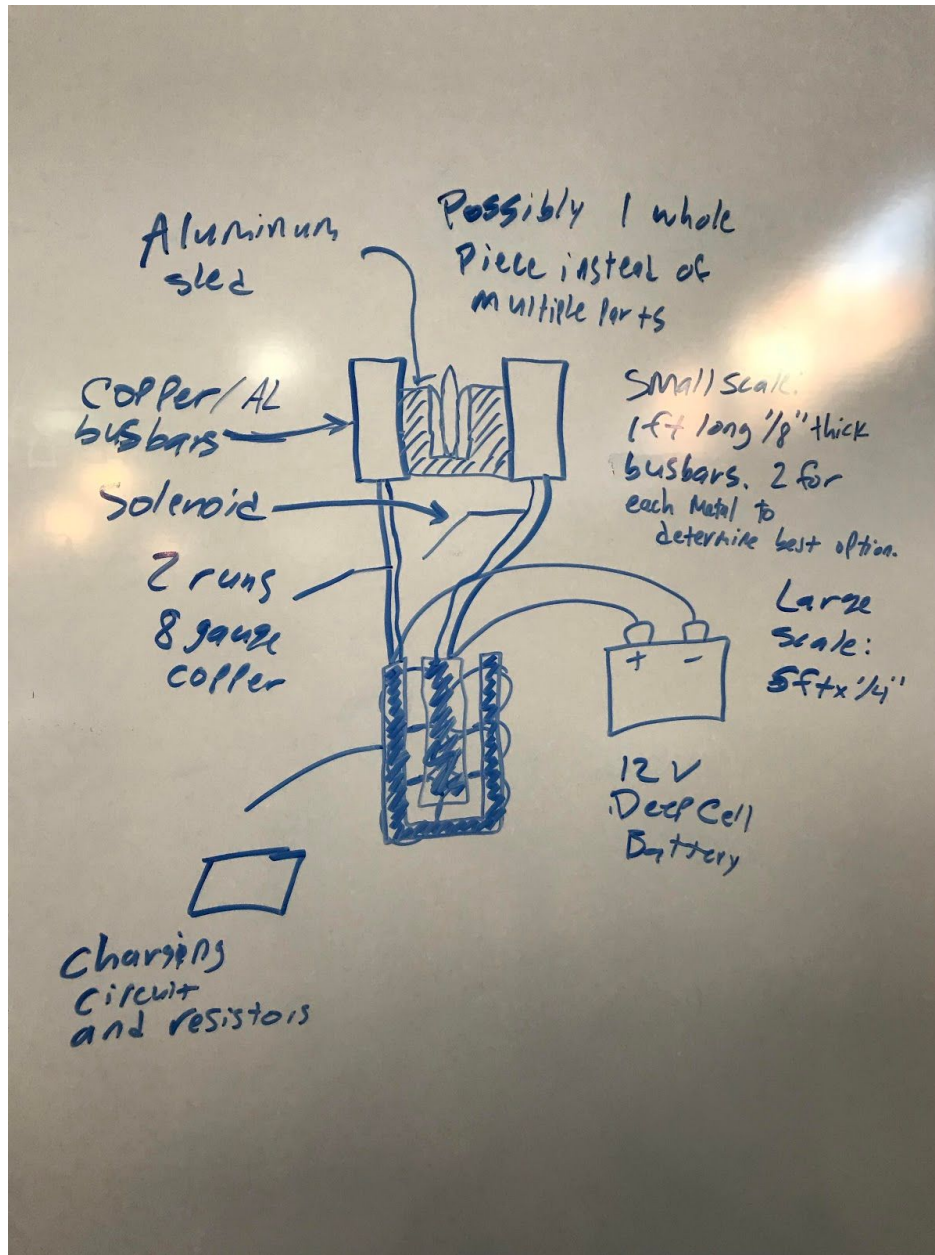 Aluminum
sled
Possibly 1 whole
Piece instead of
multiple parts
Copper/AL
busbars
Solenoid
2 runs
8 gauge
copper
Small scale:
1ft long 1/8" thick
busbars. 2 for
each metal to
determine best option.
Large
Scale:
5ft x 1/4"
+ -
12 V
Deep Cell
Battery
Charging
circuit
and resistors